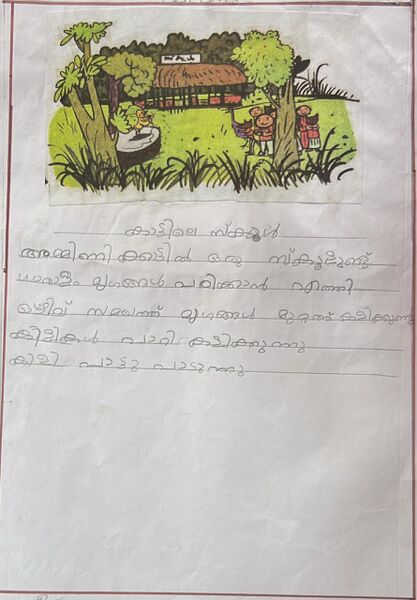 കാട്ടിലെ സ്കൂൾ
അമ്മിണി കാട്ടിൽ ഒരു സ്കൂളുണ്ട്
ധാരാളം മൃഗങ്ങൾ പഠിക്കാൻ എത്തി
ഒഴിവ് സമയത്ത് മൃഗങ്ങൾ മുറ്റത്ത് കളിക്കുന്നു
കിളികൾ പാറി കളിക്കുന്നു
കിളി പാട്ടു പാടുന്നു